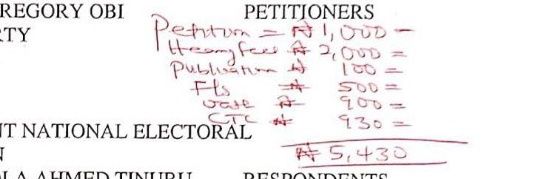 REGORY OBI PETITIONERS
RTY
Petition = ₦ 1,000 =
Hearing fees ₦ 2,000 =
Publication ₦ 100 =
Fls ₦ 500 =
oath ₦ 900 =
CTC ₦ 930 =
NT NATIONAL ELECTORAL
N
₦ 5,430
LA AHMED TINUBU RESPONDENTS